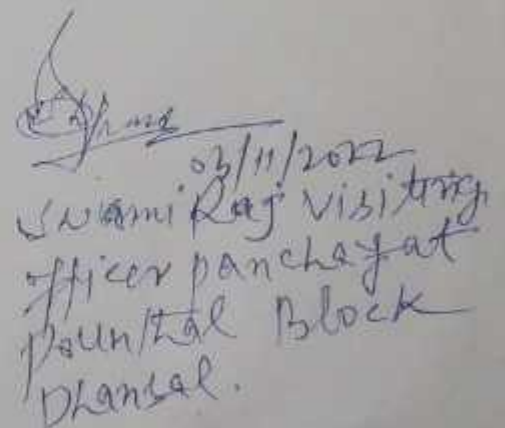 03/11/2022
Swami Raj Visiting
officer panchayat
Pounthal Block
Dhansal.